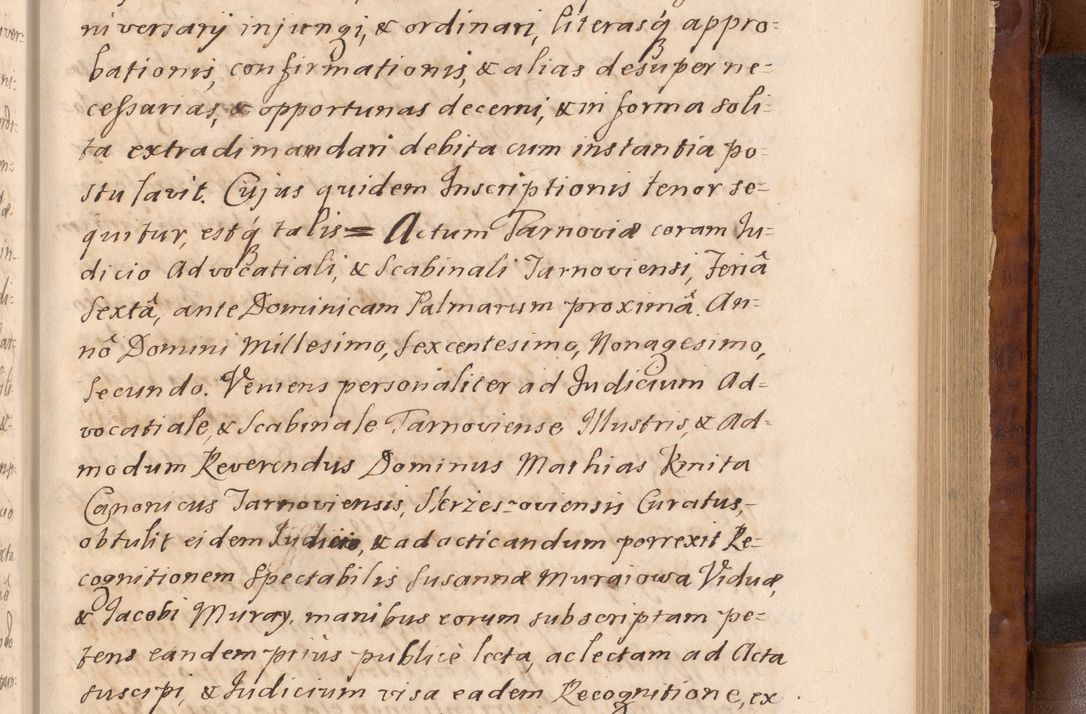 niversarij injungi, & ordinari, literasq́ appro-
bationis, confirmationis, & alias desuper ne-
cessarias, & opportunas decerni, & in forma soli-
ta extradi mandari debita cum instantia po-
stulavit. Cujus quidem Inscriptionis tenor se-
quitur, estq́ talis = Actum Tarnoviæ coram Ju-
dicio Advocatiali, & Scabinali Tarnoviensi, Feriâ
Sextâ, ante Dominicam Palmarum proximâ. An-
nô Domini Millesimo, Sexcentesimo, Nonagesimo,
Secundo. Veniens personaliter ad Judicium Ad-
vocatiale, & Scabinale Tarnoviense Illustris, & Ad-
modum Reverendus Dominus Mathias Kmita
Canonicus Tarnoviensis, Skrzes-oviensis Curatus
obtulit eidem Judicio, & ad acticandum porrexit Re-
cognitionem Spectabilis Susannæ Muraiowa Viduæ,
& Jacobi Muray, manibus eorum subscriptam pe-
tens eandem priùs publicè lecta, ac lectam ad Acta
suscipi, & Judicium visa eadem Recognitione, ex